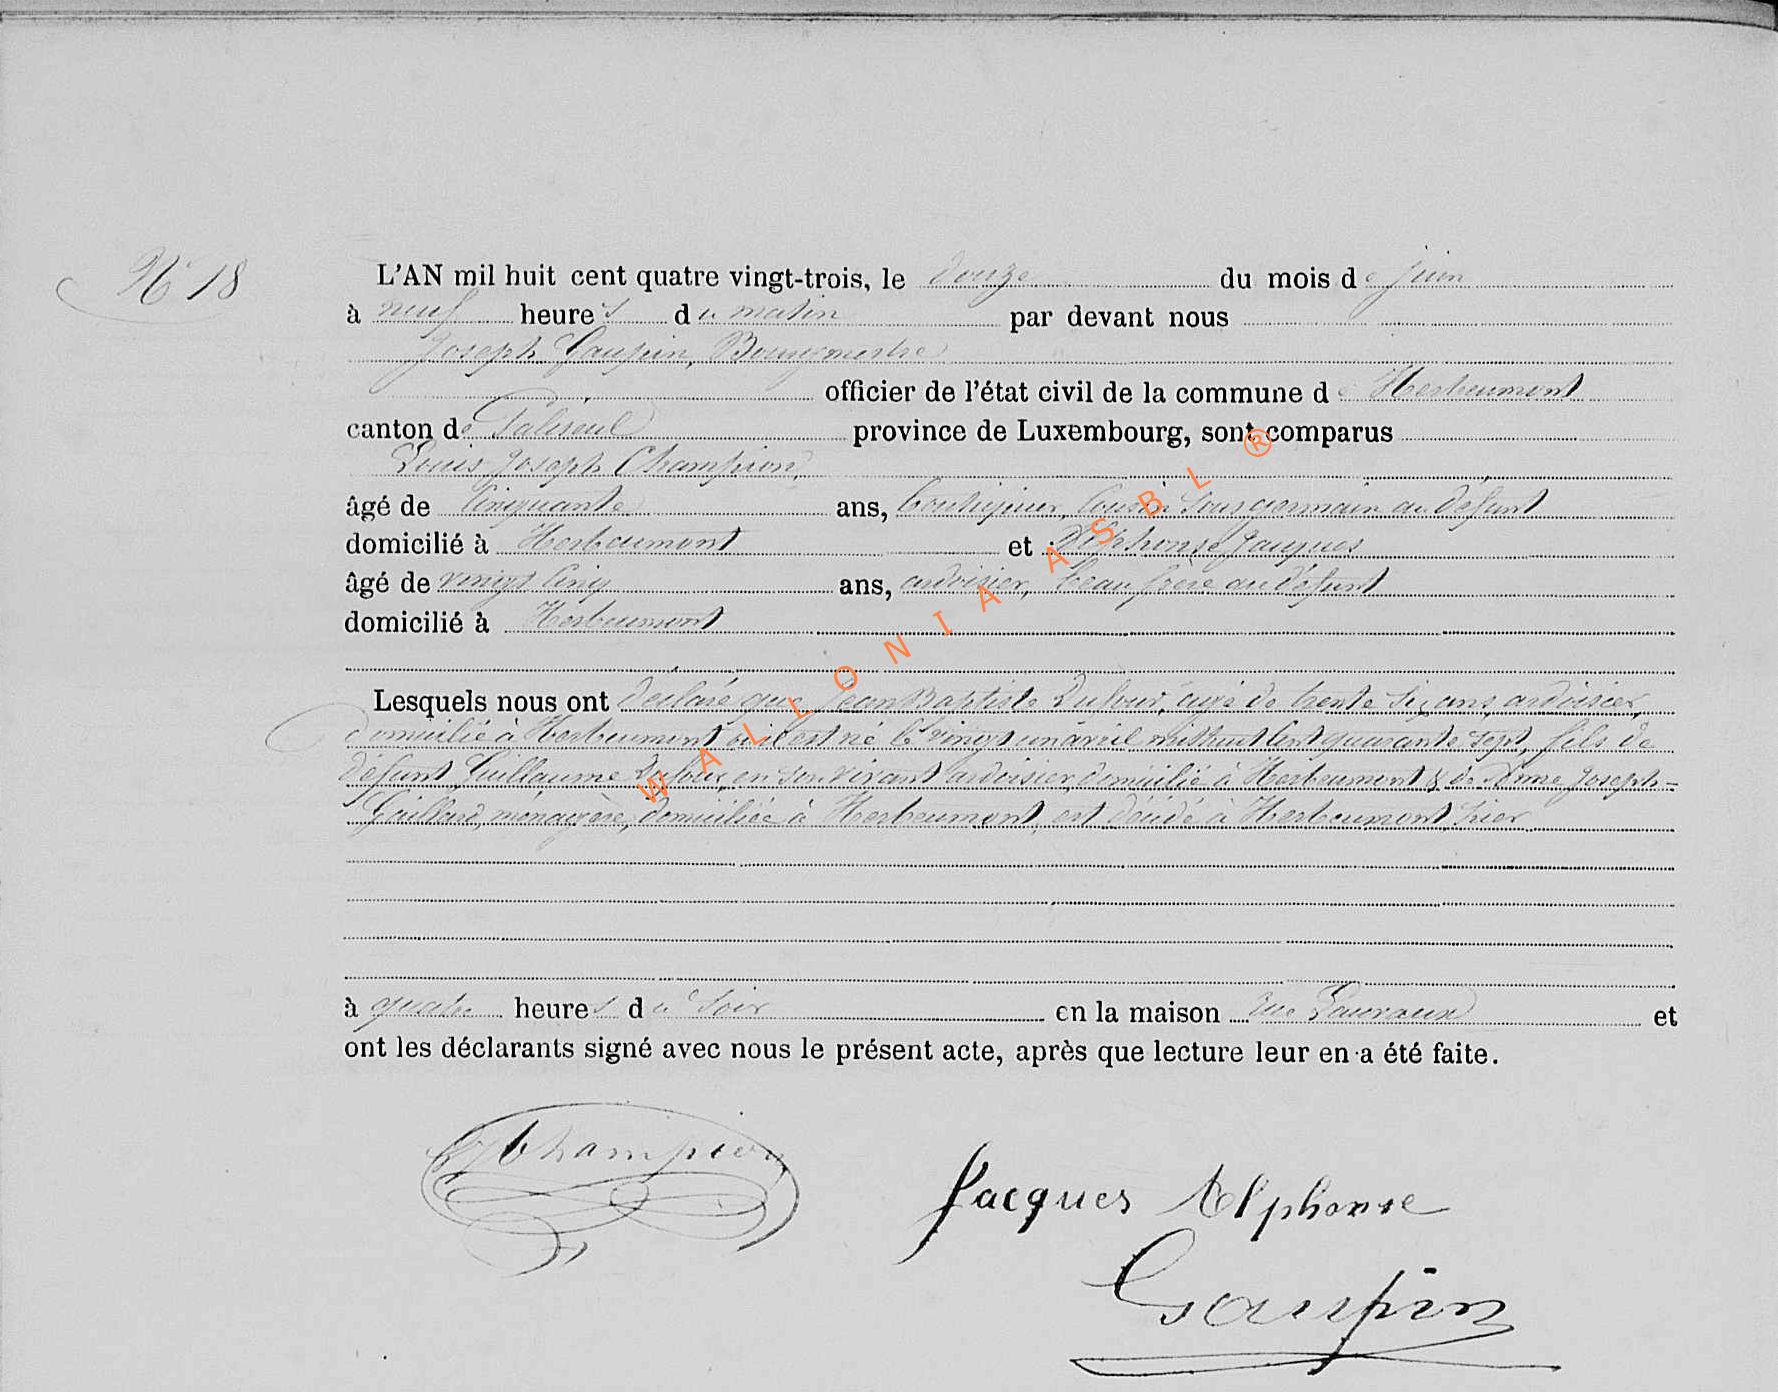 N° 18
L'AN mil huit cent quatre vingt-trois, le douze du mois de Juin
à neuf heures du matin par devant nous
Joseph Gaupin, Bourgmestre
officier de l'état civil de la commune de Herbeumont
canton de Paliseul province de Luxembourg, sont comparus
Louis Joseph Champion,
âgé de Cinquante ans, boutiquier, Cousin Sous germain au défunt
domicilié à Herbeumont et Alphonse Jacques
âgé de vingt Cinq ans, ardoisier, beau frère au défunt
domicilié à Herbeumont
Lesquels nous ont déclaré que Jean Baptiste Dufour, âgé de trente Six ans, ardoisier,
domicilié à Herbeumont où il est né le vingt un avril mil huit Cent quarante Sept, fils de
défunt Guillaume Dufour, en Son vivant ardoisier, domicilié à Herbeumont & de Anne Joseph-
Gaillard, ménagère, domiciliée à Herbeumont, est décédé à Herbeumont, hier
à quatre heures du Soir en la maison rue et
ont les déclarants signé avec nous le présent acte, après que lecture leur en a été faite.
Champion
Jacques Alphonse
Gaupin
WALLONIA ASBL ®